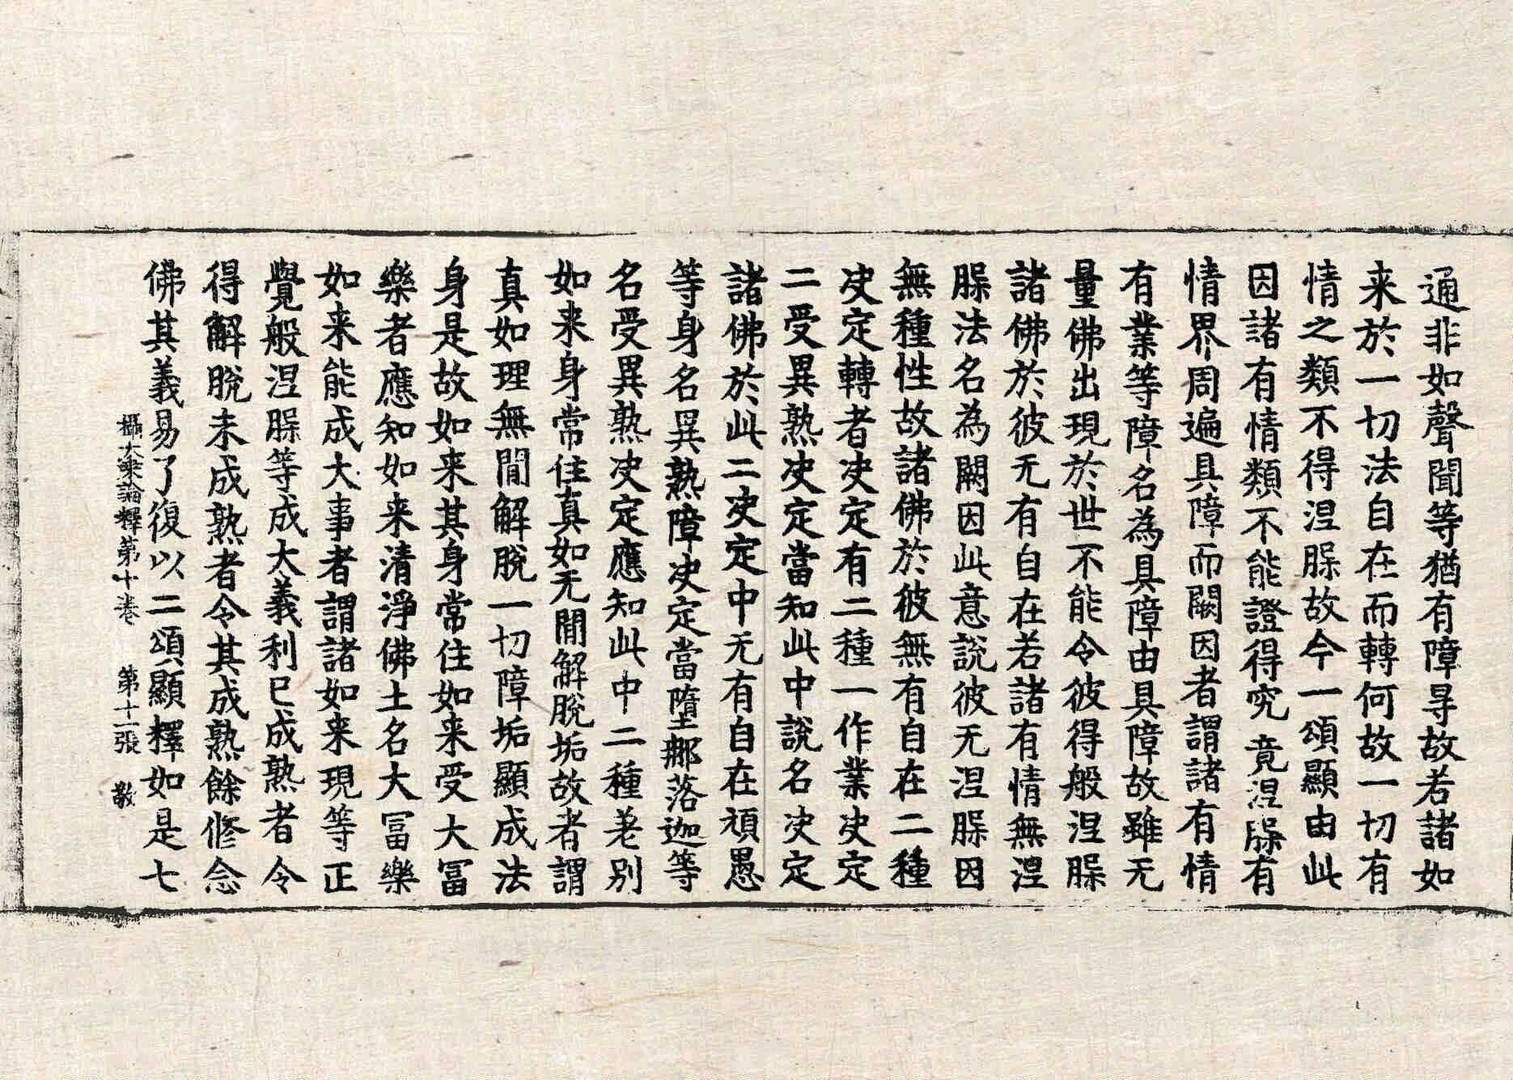 通非如聲聞等猶有障㝵故若諸如
来於一切法自在而轉何故一切有
情之類不得涅槃故今一頌顯由此
因諸有情類不能證得究竟涅槃有
情界周遍具障而闕因者謂諸有情
有業等障名為具障由具障故雖无
量佛出現於世不能令彼得般涅槃
諸佛於彼无有自在若諸有情無涅
槃法名為闕因此意說彼无涅槃因
無種性故諸佛於彼無有自在二種
决定轉者决定有二種一作業决定
二受異熟决定當知此中說名决定
諸佛於此二决定中无有自在頑愚
等身名異熟障决定當墮那落迦等
名受異熟决定應知此中二種差別
如来身常住真如无間解脫垢故者謂
真如理無間解脫一切障垢顯成法
身是故如来其身常住如来受大冨
樂者應知如来清淨佛土名大冨樂
如来能成大事者謂諸如来現等正
覺般涅槃等成大義利已成熟者令
得解脫未成熟者令其成熟餘修念
佛其義易了復以二頌顯釋如是七
攝大乗論釋第十卷 第十一張 敬